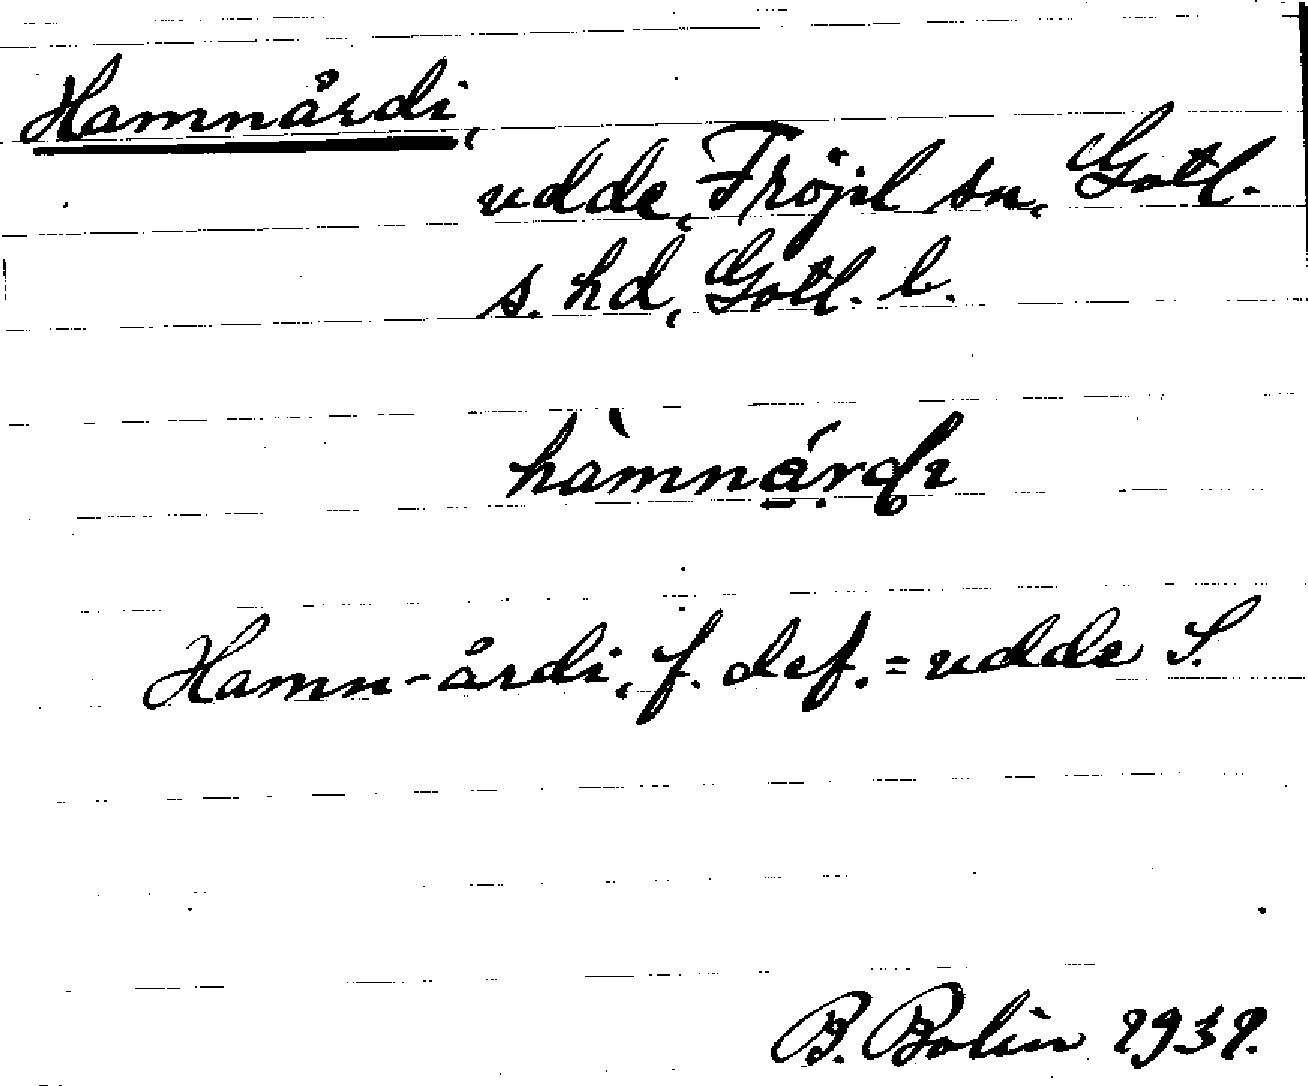 Hamnårdi,
udde, Fröjel sn, Gotl.
s. hd, Gotl. l.
Hamn-årdi, f. def. = udde S.
B. Bolin 1939.